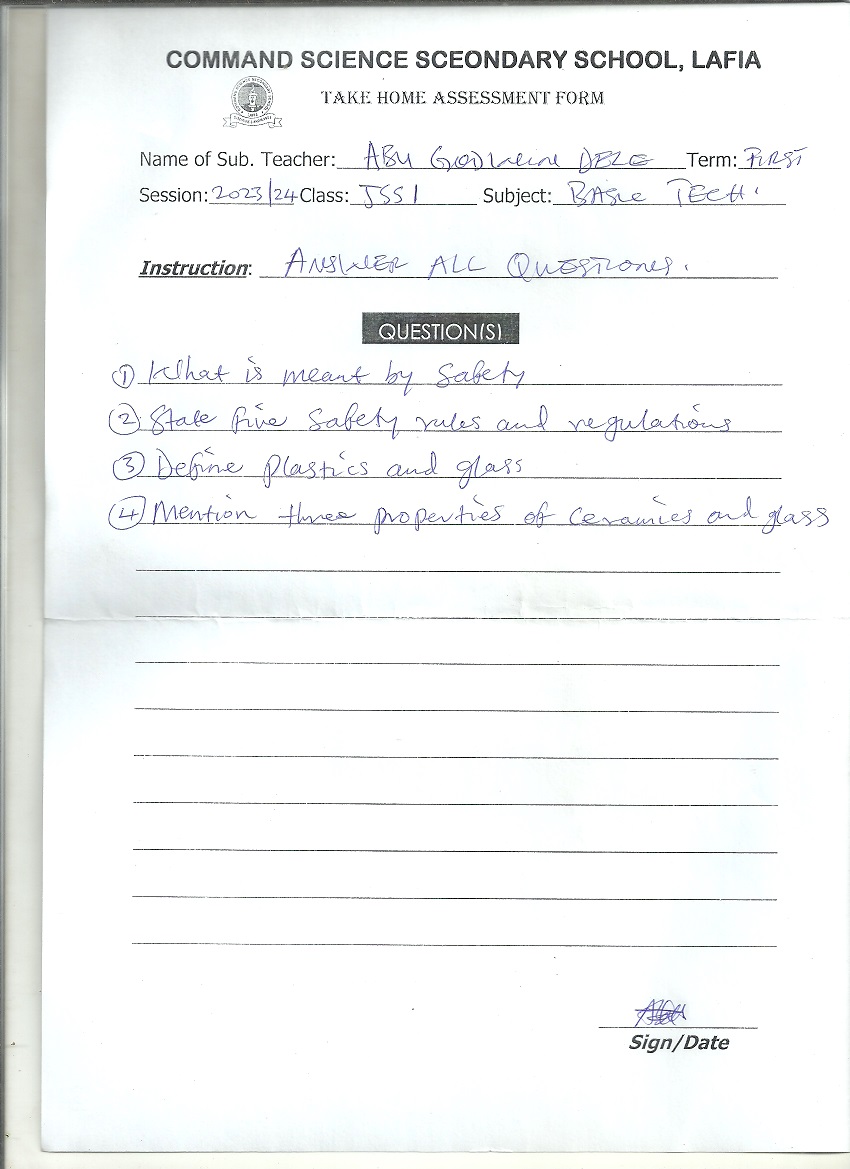 COMMAND SCIENCE SCEONDARY SCHOOL, LAFIA
TAKE HOME ASSESSMENT FORM
Name of Sub. Teacher: ABU Term: FIRST
Session: 2023/24 Class: JSS1 Subject: BASIC TECH.
Instruction: ANSWER ALL QUESTIONS.
QUESTION(S)
① What is meant by Safety
② State five Safety rules and regulations
③ Define plastics and glass
④ Mention three properties of ceramics and glass
Sign/Date